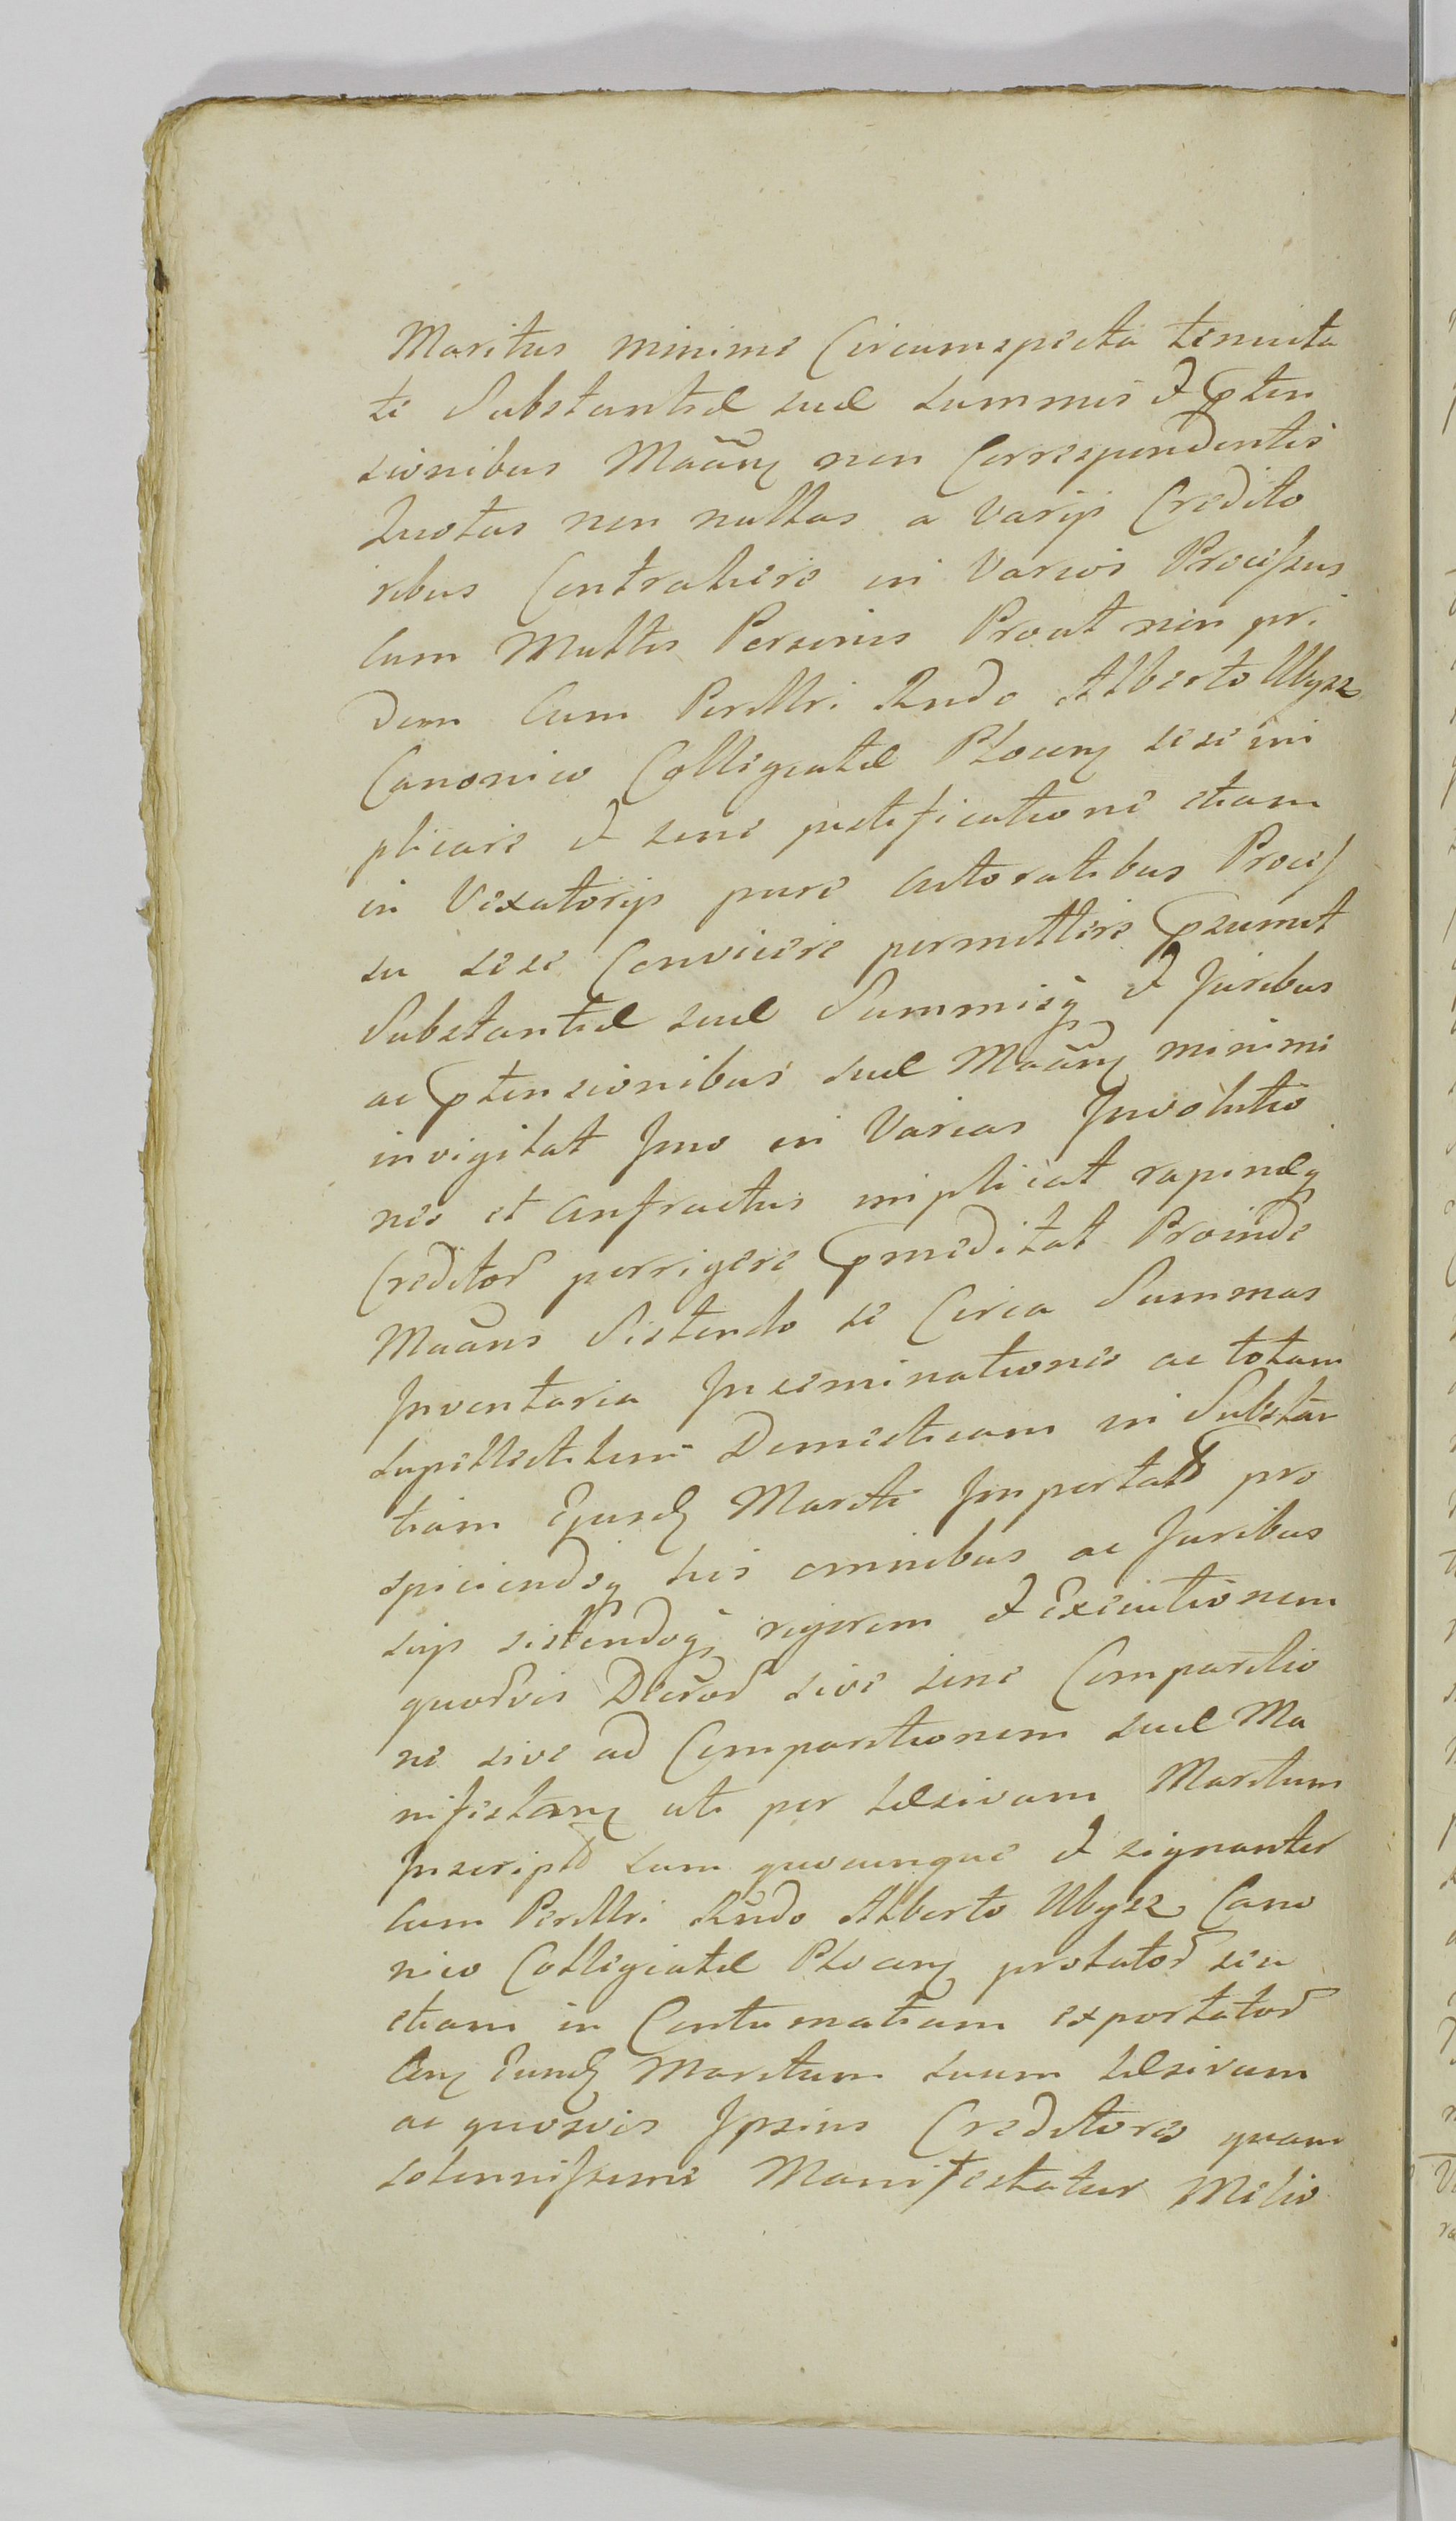 Maritus minime Circumspecta tenuita
te Substantiæ suæ summis et Pten
sionibus Maãnʒ non Correspondentis
quotas non nullas a varijs Credito
ribus Contrahere in Varios Processus
Cum Multis Personis Prout non pri
dem Cum Perillri Rndo Alberto Ulysz
Canonico Collegiatæ Plocenʒ sese im
plicare et sine justificatione etiam
in Vexatorijs pure actoratibus Proces
su sese Convicere permittere Psumit
Substantiæ suæ Summisq et Juribus
ac Ptensionibus suæ Maãnʒ minime
invigilat Imo in Varias Involutio
nes et anfractus implicat rapinæq
Creditor porrigere Pmeditat Proinde
Maãns Sistendo se Circa Summas
Inventaria Inseminationes ac totam
supellectilem Domesticam in Substan
tiam Ejusdʒ Mariti Importat pro
spiciendoq his omnibus ac Juribus
suis sistendoq rigorem et Executionem
quorvis Decror sive sine Comparitio
ne sive ad Comparitionem suæ Ma
nifestanʒ uti per læsivum Maritum
Inscript cum quocunque et signanter
Cum Perillri Rndo Alberto Ulysz Cano
nico Collegiatæ Plocenʒ prolator seu
etiam in Contumatiam exportator
Cnʒ Eundʒ Maritum suum læsivum
ac quosvis Ipsius Creditores quam
solennissime Manifestatur Melio